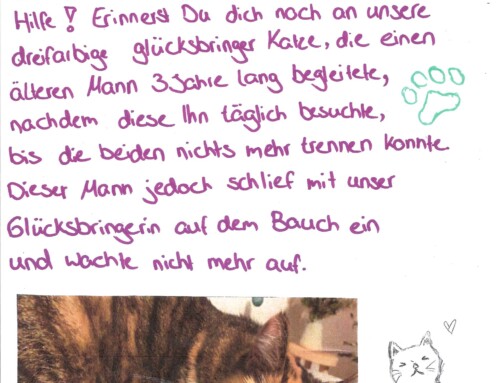 Hilfe! Erinnerst Du dich noch an unsere
dreifarbige glücksbringer Katze, die einen
älteren Mann 3 Jahre lang begleitete,
nachdem diese Ihn täglich besuchte,
bis die beiden nichts mehr trennen konnte
Dieser Mann jedoch schlief mit unser
Glücksbringerin auf dem Bauch ein
und wachte nicht mehr auf.